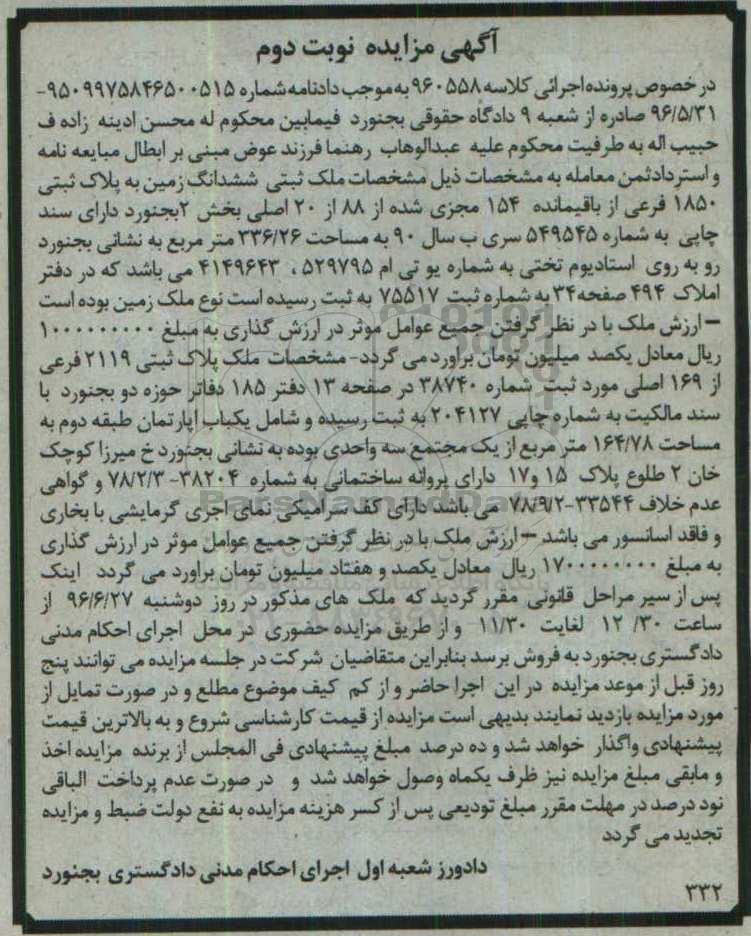 آگهی مزایده نوبت دوم
در خصوص پرونده اجرائی کلاسه ۹۶۰۵۵۸ به موجب دادنامه شماره ۹۵۰۹۹۷۵۸۴۶۵۰۰۵۱۵-
۹۶/۵/۳۱ صادره از شعبه ۹ دادگاه حقوقی بجنورد فیمابین محکوم له محسن ادینه زاده ف
حبیب اله به طرفیت محکوم علیه عبدالوهاب رهنما فرزند عوض مبنی بر ابطال مبایعه نامه
و استردادثمن معامله به مشخصات ذیل مشخصات ملک ثبتی ششدانگ زمین به پلاک ثبتی
۱۸۵۰ فرعی از باقیمانده ۱۵۴ مجزی شده از ۸۸ از ۲۰ اصلی بخش ۲بجنورد دارای سند
چاپی به شماره ۵۴۹۵۴۵ سری ب سال ۹۰ به مساحت ۳۳۶/۲۶ متر مربع به نشانی بجنورد
رو به روی استادیوم تختی به شماره یو تی ام ۵۲۹۷۹۵ ، ۴۱۴۹۶۴۳ می باشد که در دفتر
املاک ۴۹۴ صفحه۳۴ به شماره ثبت ۷۵۵۱۷ به ثبت رسیده است نوع ملک زمین بوده است
– ارزش ملک با در نظر گرفتن جمیع عوامل موثر در ارزش گذاری به مبلغ ۱۰۰۰۰۰۰۰۰۰
ریال معادل یکصد میلیون تومان براورد می گردد- مشخصات ملک پلاک ثبتی ۲۱۱۹ فرعی
از ۱۶۹ اصلی مورد ثبت شماره ۳۸۷۴۰ در صفحه ۱۳ دفتر ۱۸۵ دفاتر حوزه دو بجنورد با
سند مالکیت به شماره چاپی ۲۰۴۱۲۷ به ثبت رسیده و شامل یکباب اپارتمان طبقه دوم به
مساحت ۱۶۴/۷۸ متر مربع از یک مجتمع سه واحدی بوده به نشانی بجنورد خ میرزا کوچک
خان ۲ طلوع پلاک ۱۵ و۱۷ دارای پروانه ساختمانی به شماره ۳۸۲۰۴- ۷۸/۲/۳ و گواهی
عدم خلاف ۳۳۵۴۴-۷۸/۹/۲ می باشد دارای کف سرامیکی نمای اجری گرمایشی با بخاری
و فاقد اسانسور می باشد – ارزش ملک با در نظر گرفتن جمیع عوامل موثر در ارزش گذاری
به مبلغ ۱۷۰۰۰۰۰۰۰۰ ریال معادل یکصد و هفتاد میلیون تومان براورد می گردد اینک
پس از سیر مراحل قانونی مقرر گردید که ملک های مذکور در روز دوشنبه ۹۶/۶/۲۷ از
ساعت ۱۲ /۳۰ لغایت ۱۱/۳۰ و از طریق مزایده حضوری در محل اجرای احکام مدنی
دادگستری بجنورد به فروش برسد بنابراین متقاضیان شرکت در جلسه مزایده می توانند پنج
روز قبل از موعد مزایده در این اجرا حاضر و از کم کیف موضوع مطلع و در صورت تمایل از
مورد مزایده بازدید نمایند بدیهی است مزایده از قیمت کارشناسی شروع و به بالاترین قیمت
پیشنهادی واگذار خواهد شد و ده درصد مبلغ پیشنهادی فی المجلس از برنده مزایده اخذ
و مابقی مبلغ مزایده نیز ظرف یکماه وصول خواهد شد و در صورت عدم پرداخت الباقی
نود درصد در مهلت مقرر مبلغ تودیعی پس از کسر هزینه مزایده به نفع دولت ضبط و مزایده
تجدید می گردد
دادورز شعبه اول اجرای احکام مدنی دادگستری بجنورد
۳۳۲
ParsNamadData